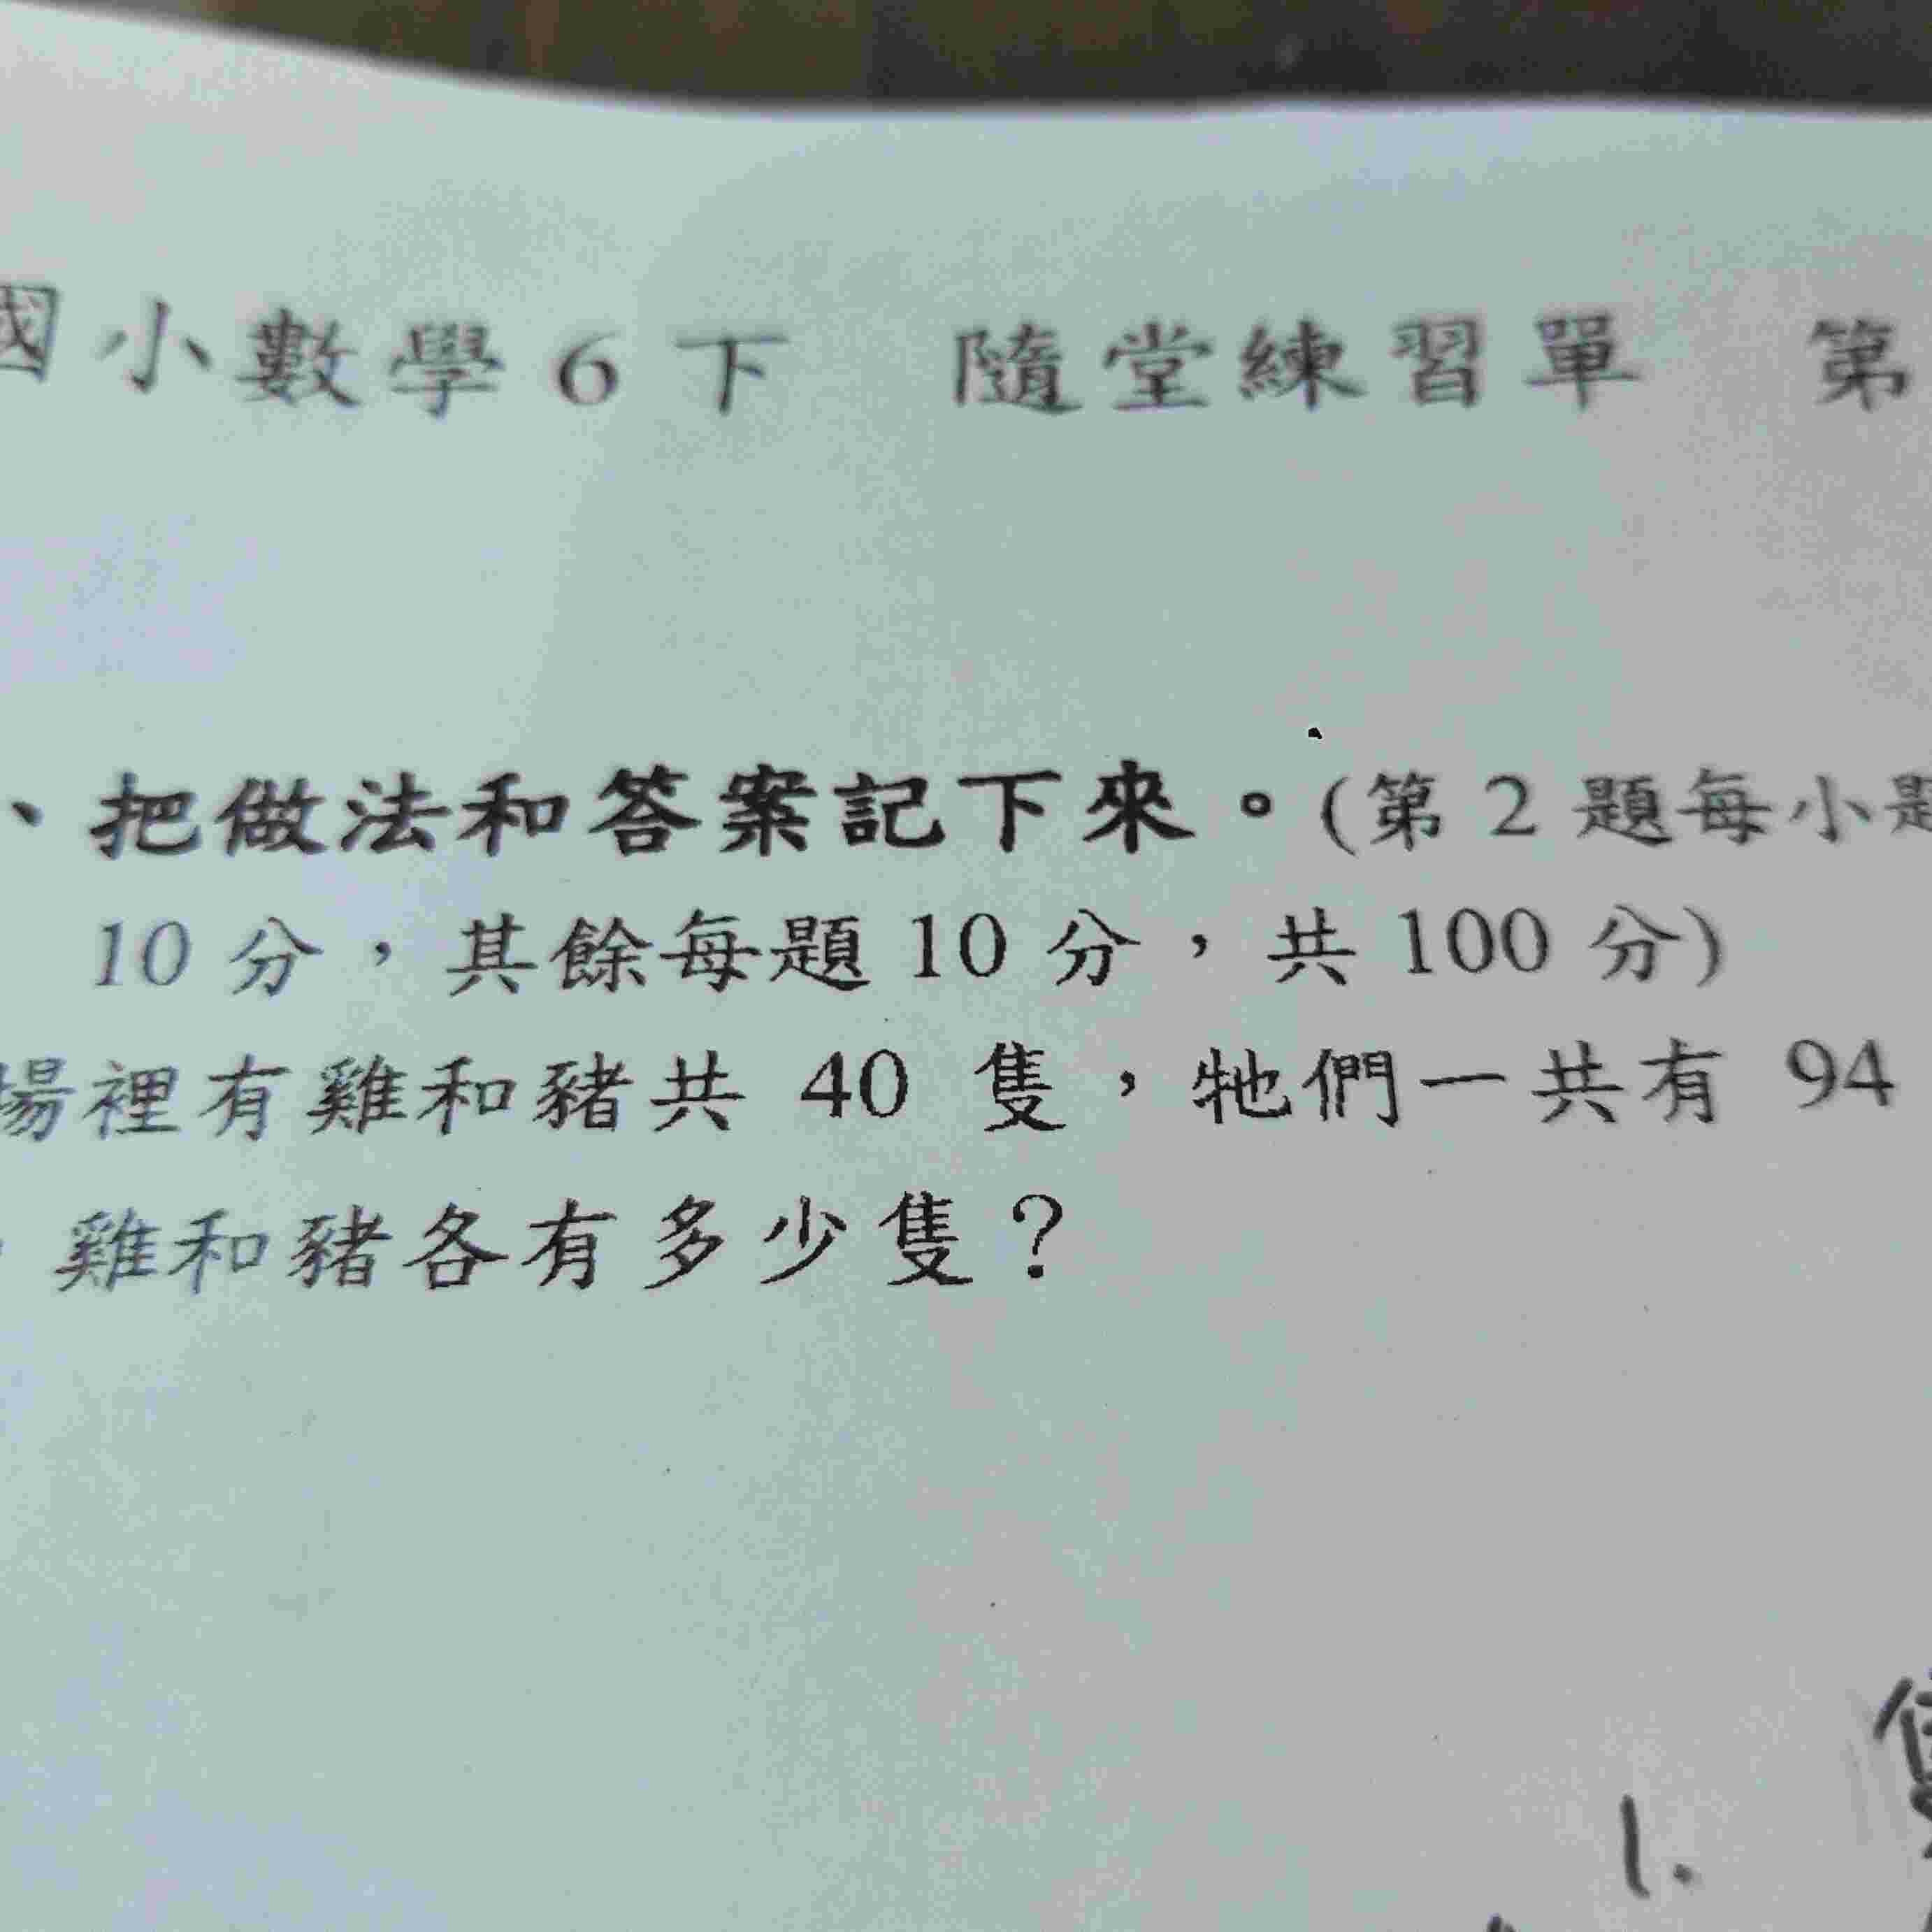 國小數學6下 隨堂練習單 第
、把做法和答案記下來。(第 2 題每小題
10 分,其餘每題 10 分,共 100 分)
場裡有雞和豬共 40 隻,牠們一共有 94
雞和豬各有多少隻?
1.